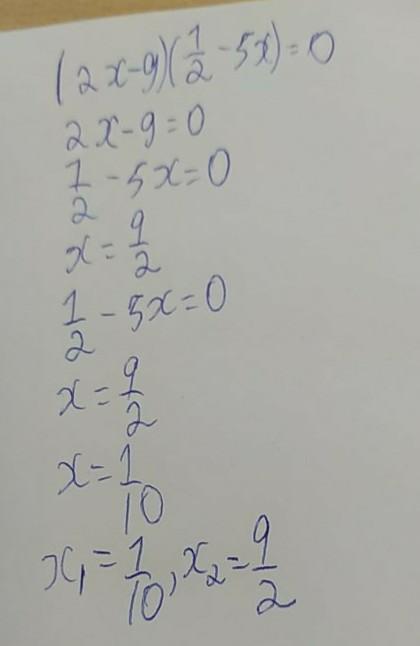 (2x-9)(1/2-5x)=0
2x-9=0
1/2-5x=0
x=9/2
1/2-5x=0
x=9/2
x=1/10
x₁=1/10, x₂=9/2